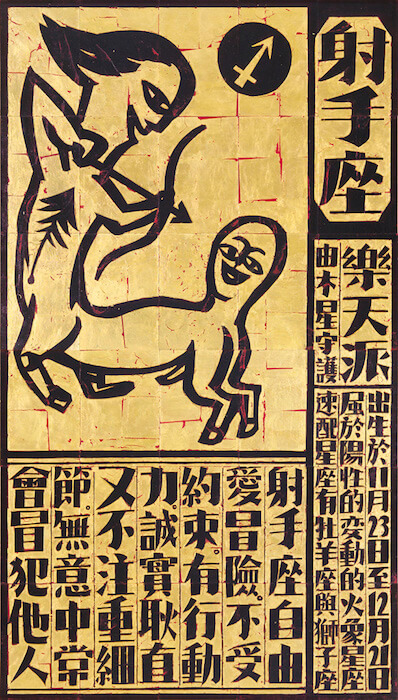 射手座
樂天派
由木星守護
出生於11月23日至12月21日
属於陽性的変動的火象星座
速配星座有牡羊座與獅子座
射手座自由
愛冒險。不受
約束。有行動
力。誠實耿直
又不注重細
節。無意中常
會冒犯他人